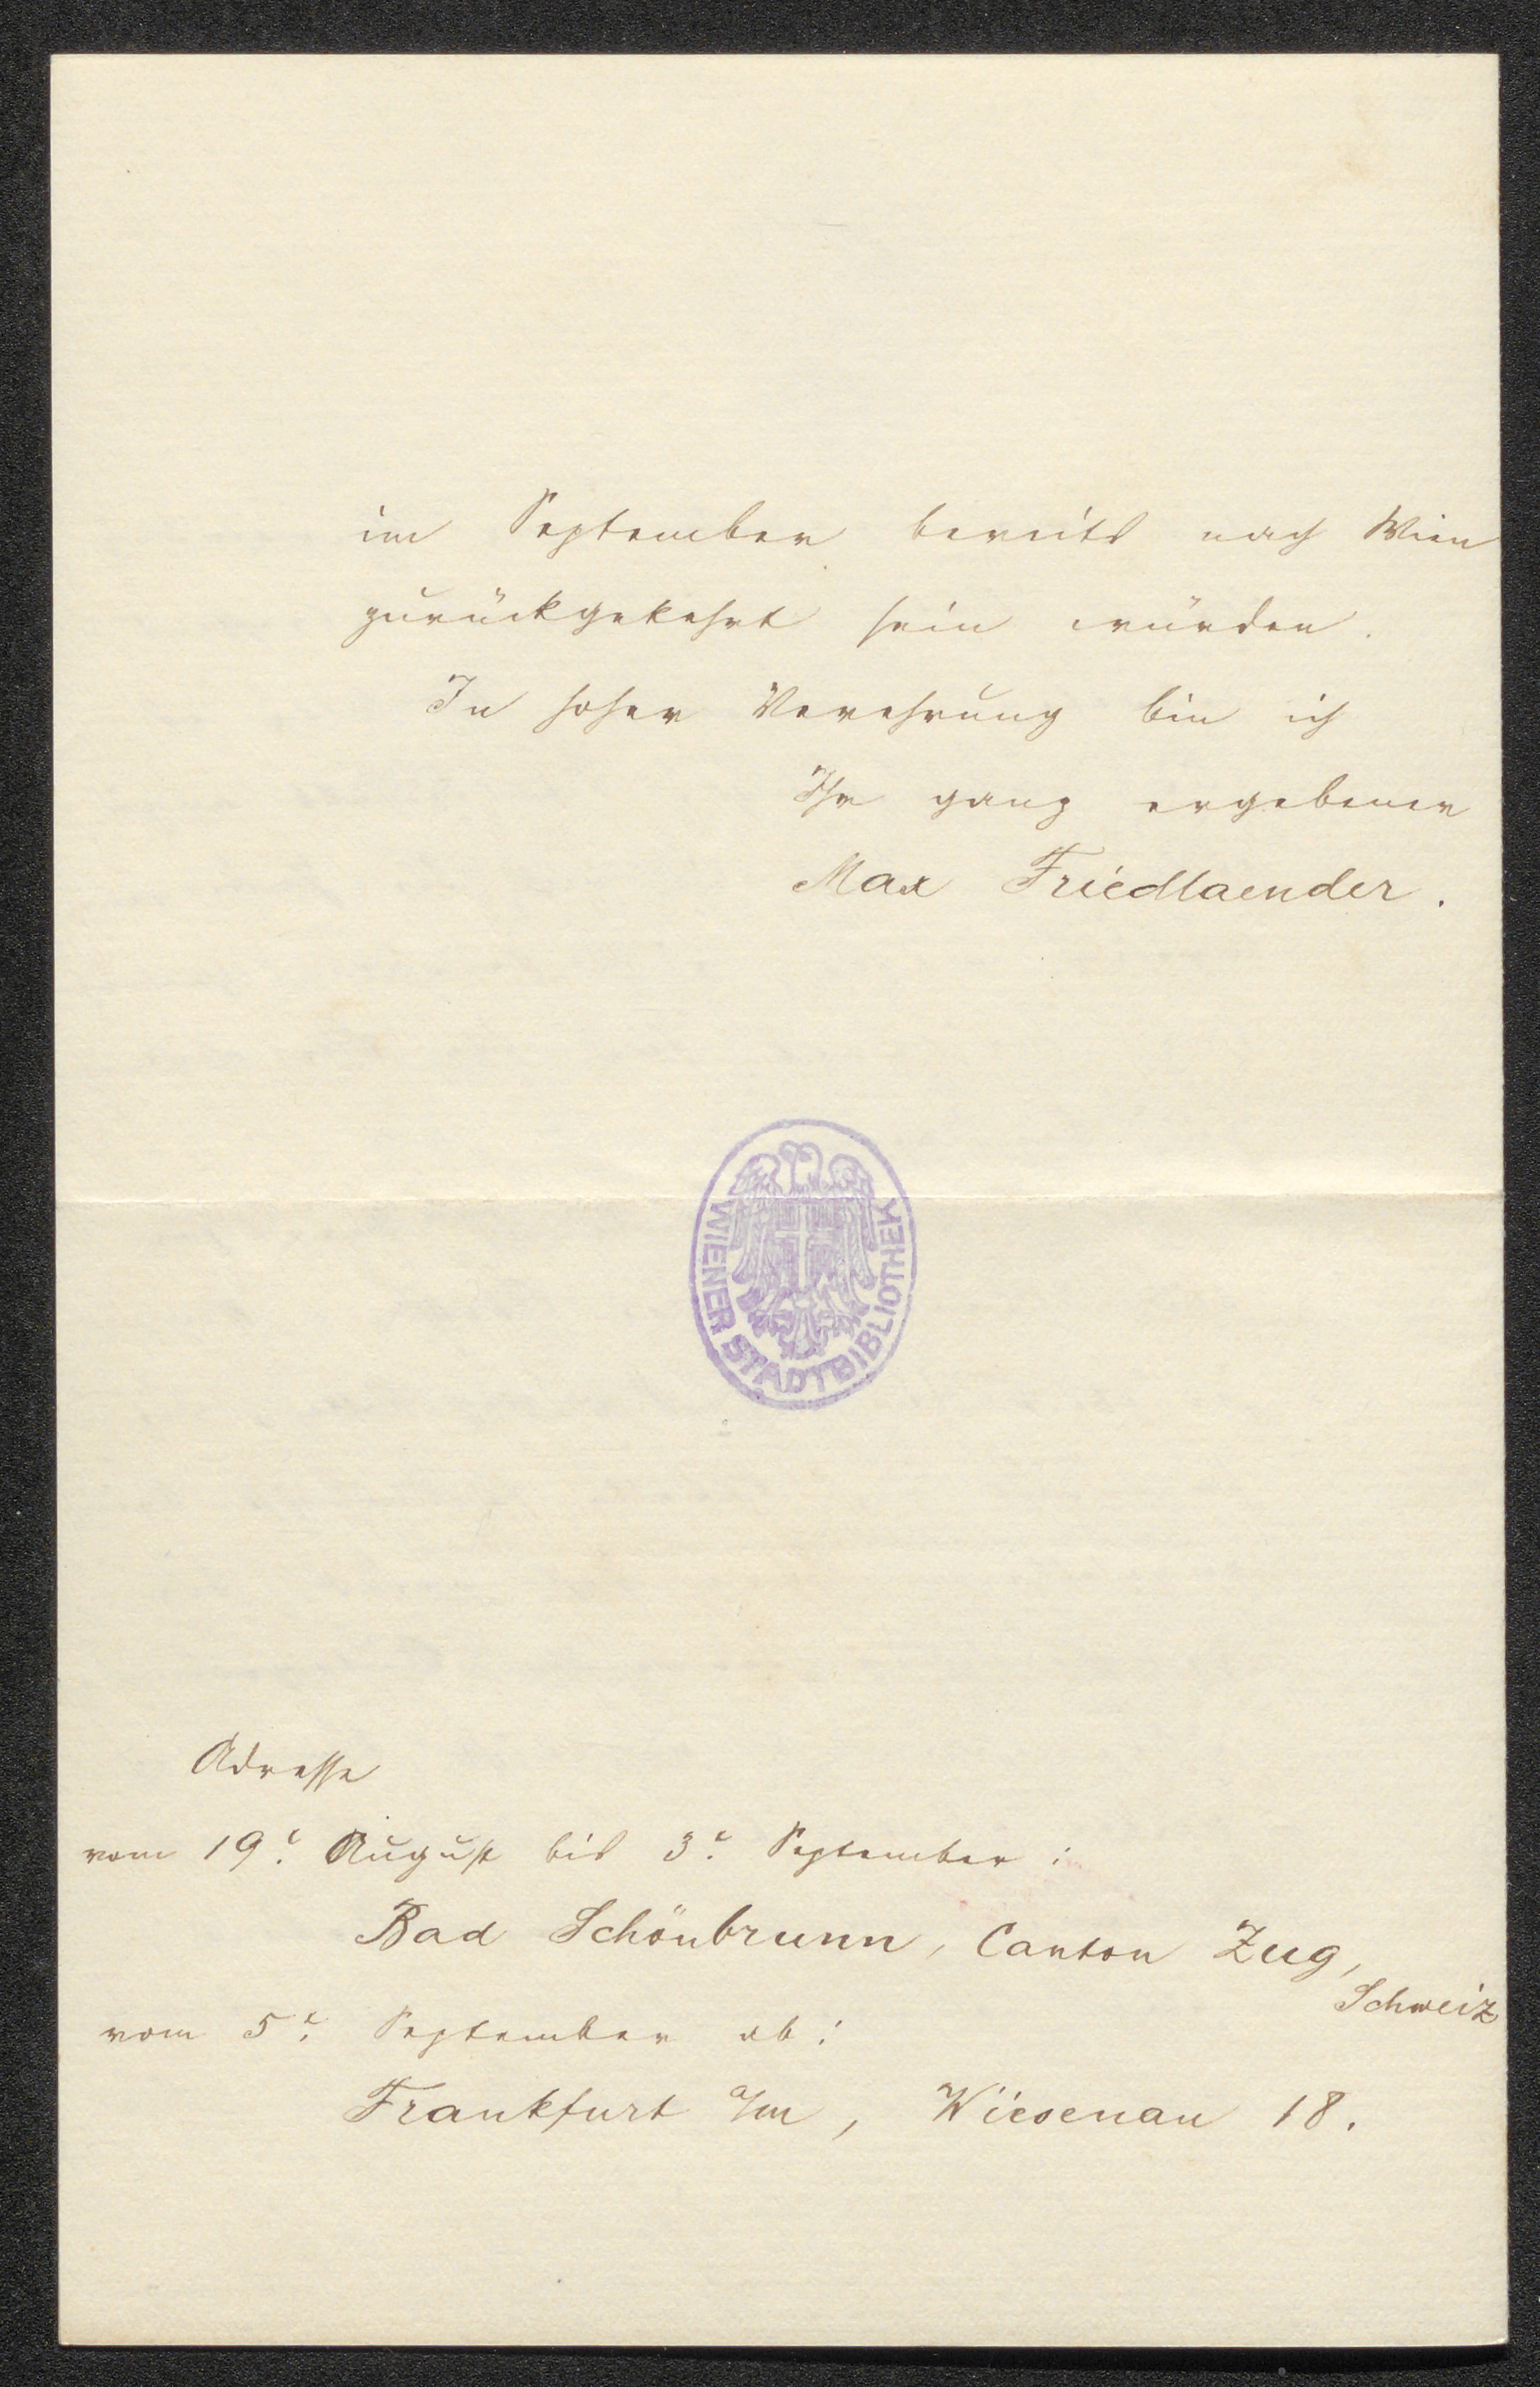 im September bereits nach Wien
zurückgekehrt sein würden.
In hoher Verehrung bin ich
Ihr ganz ergebener
Max Friedlaender.
WIENER STADTBIBLIOTHEK
Adresse
vom 19t. August bis 3t. September:
Bad Schönbrunn, Canton Zug,
Schweiz
vom 5t. September ab:
Frankfurt a/m, Wiesenau 18.